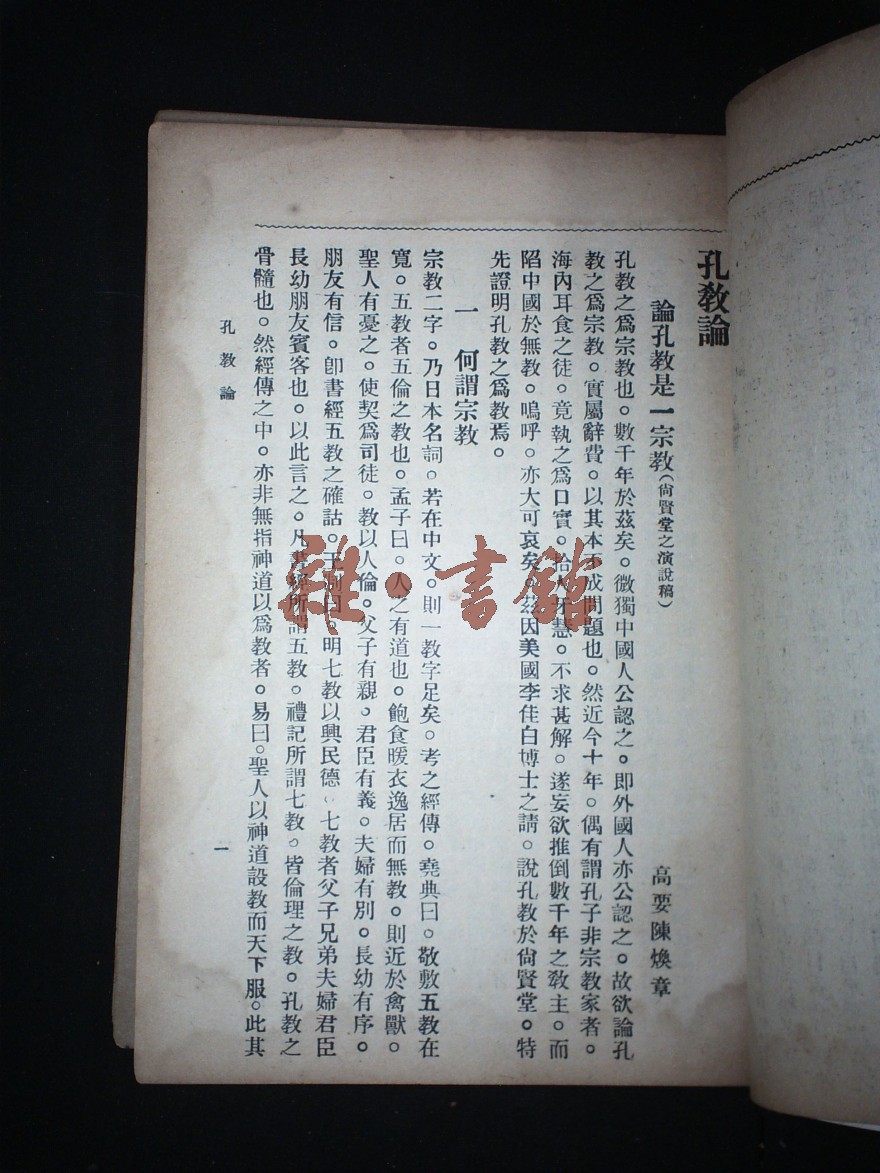 孔教論
論孔教是一宗教（尙賢堂之演說稿） 高要陳煥章
孔教之爲宗教也。數千年於茲矣。微獨中國人公認之。即外國人亦公認之。故欲論孔
教之爲宗教。實屬辭費。以其本不成問題也。然近今十年。偶有謂孔子非宗教家者。
海內耳食之徒。竟執之爲口實。拾 牙慧。不求甚解。遂妄欲推倒數千年之教主。而
陷中國於無教。嗚呼。亦大可哀矣。茲因美國李佳白博士之請。說孔教於尙賢堂。特
先證明孔教之爲教焉。
一 何謂宗教
宗教二字。乃日本名詞。若在中文。則一教字足矣。考之經傳。堯典曰。敬敷五教在
寬。五教者五倫之教也。孟子曰。人之有道也。飽食暖衣逸居而無教。則近於禽獸。
聖人有憂之。使契爲司徒。教以人倫。父子有親。君臣有義。夫婦有別。長幼有序。
朋友有信。卽書經五教之確詁。王制曰。明七教以興民德。七教者父子兄弟夫婦君臣
長幼朋友賓客也。以此言之。凡書經所謂五教。禮記所謂七教。皆倫理之教。孔教之
骨髓也。然經傳之中。亦非無指神道以爲教者。易曰。聖人以神道設教而天下服。此其
孔教論 一
雜·書館